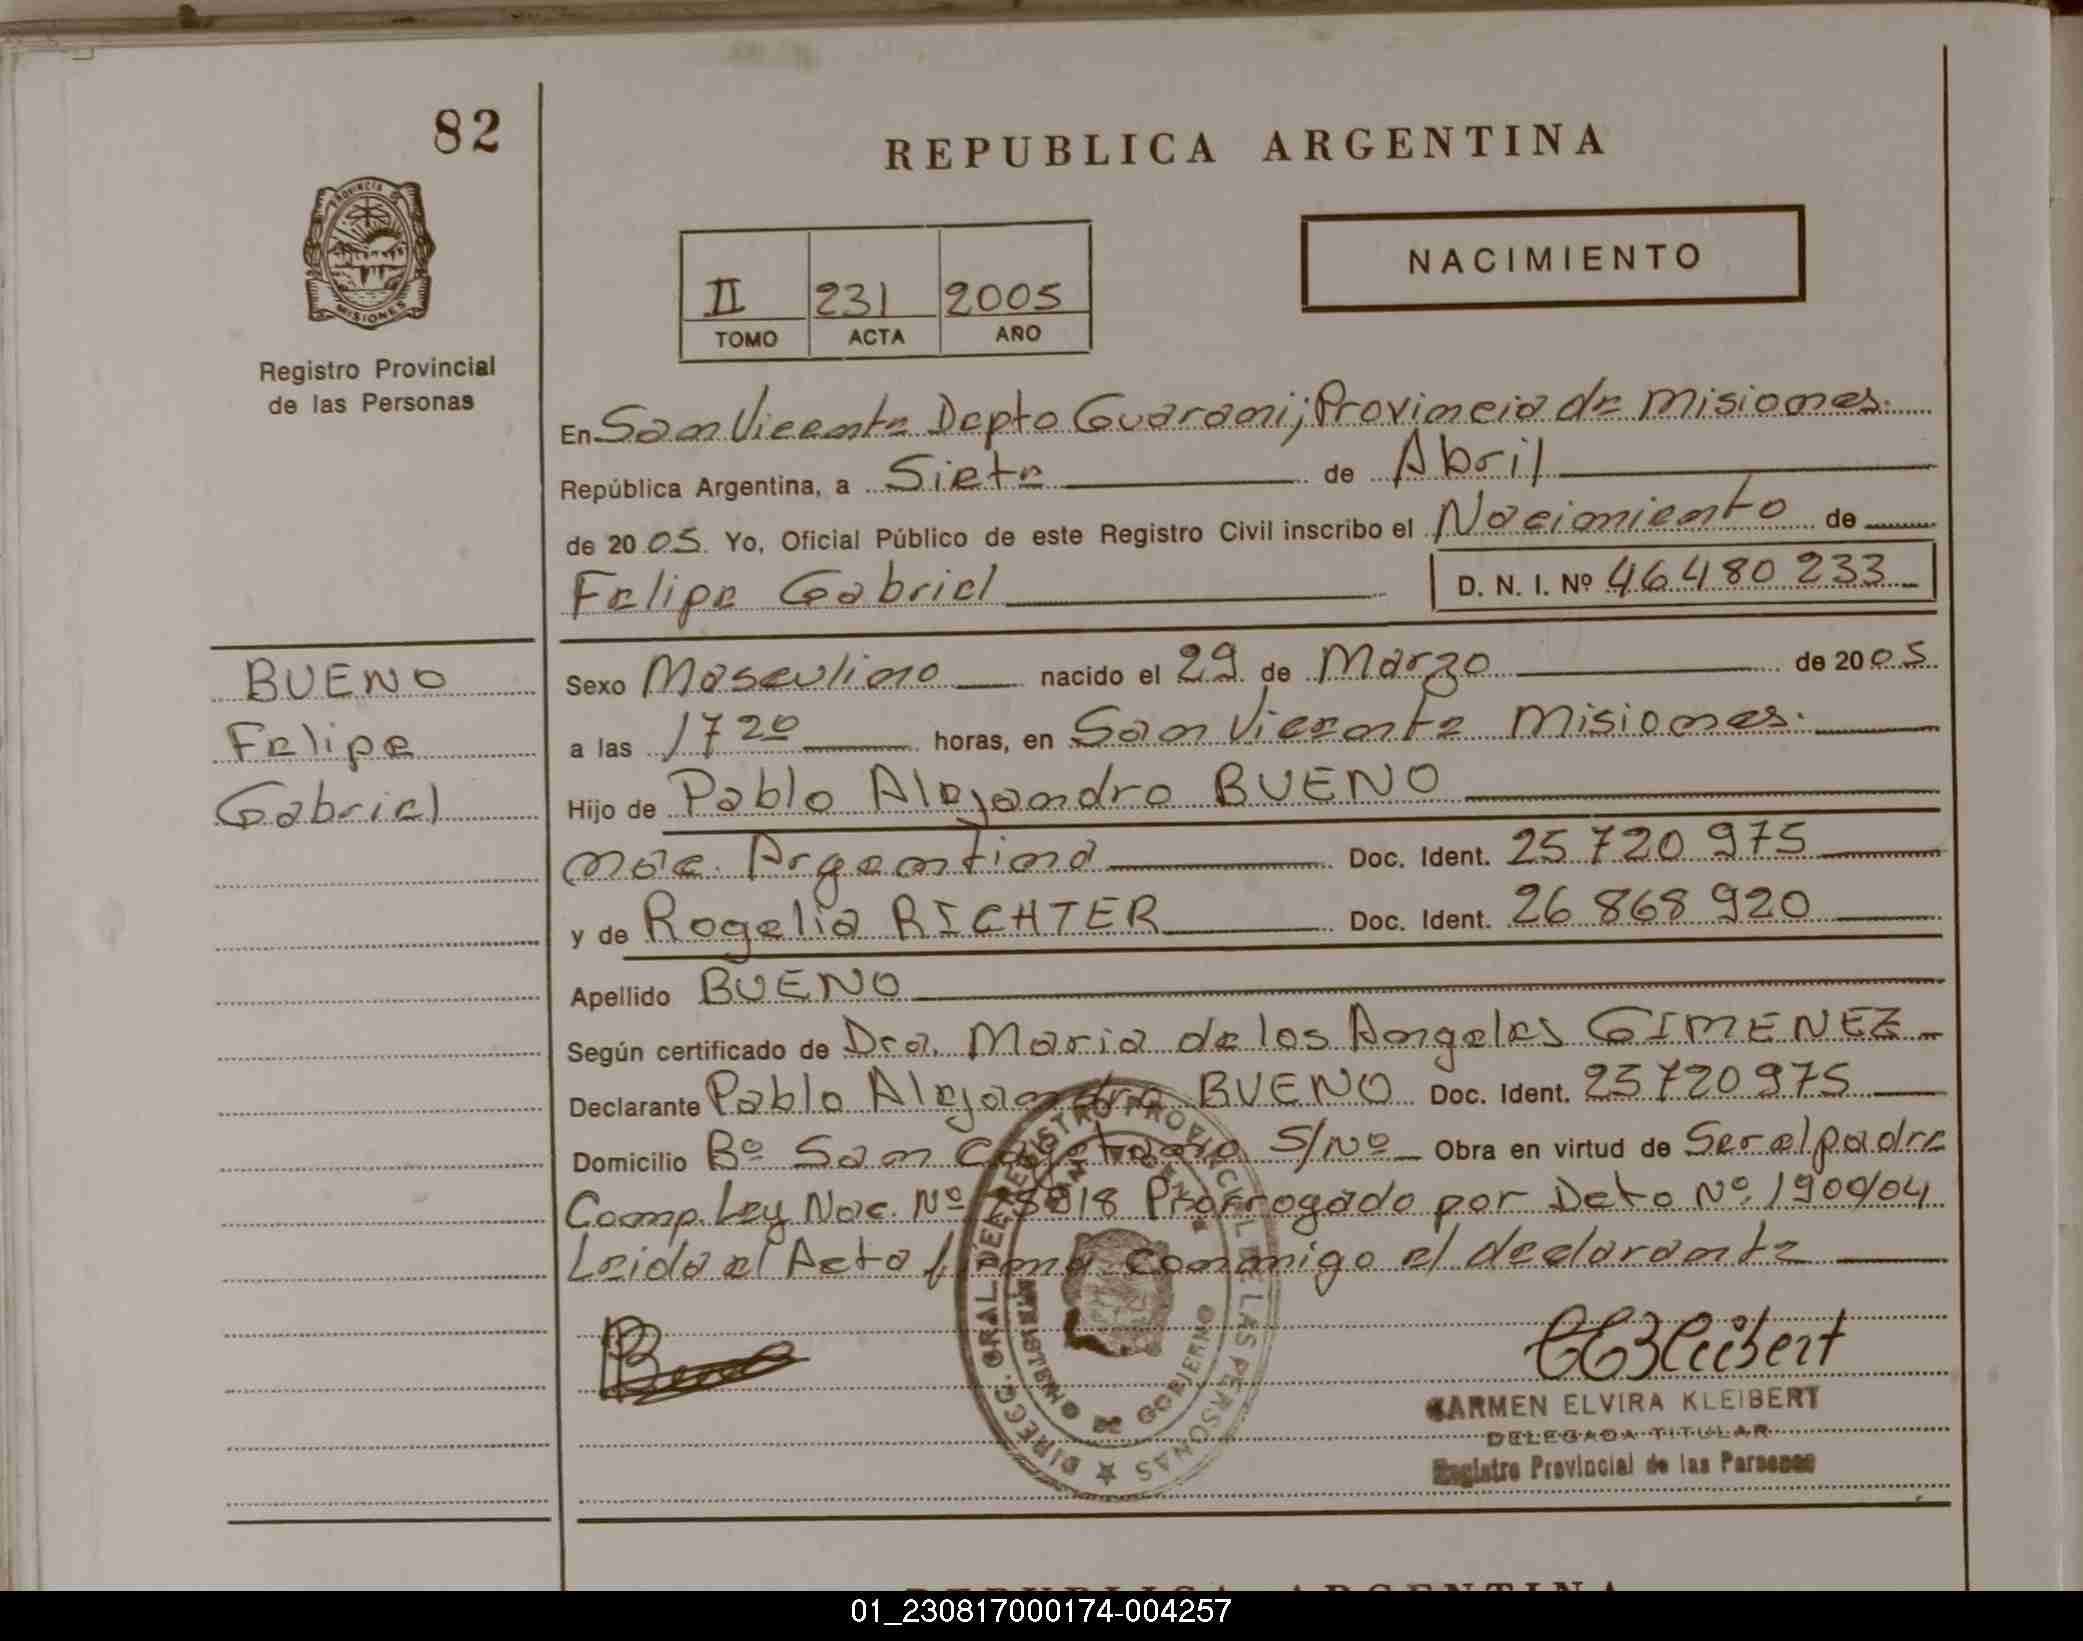 82
REPUBLICA ARGENTINA
PROVINCIA DE
MISIONES
Registro Provincial
de las Personas
NACIMIENTO
II 231 2005
TOMO ACTA AÑO
En San Vicente Depto Guarani; Provincia de Misiones.
República Argentina, a Siete de Abril
de 2005. Yo, Oficial Público de este Registro Civil inscribo el Nacimiento de
Felipe Gabriel D. N. I. Nº 46.480 233
BUENO
Felipe
Gabriel
Sexo Masculino nacido el 29 de Marzo de 2005
a las 17 20 horas, en San Vicente Misiones.
Hijo de Pablo Alejandro BUENO
nac. Argentina Doc. Ident. 25 720 975
y de Rogelia RICHTER Doc. Ident. 26 868 920
Apellido BUENO
Según certificado de Dra. Maria de los Angeles GIMENEZ
Declarante Pablo Alejandro BUENO Doc. Ident. 25 720 975
Domicilio Bº San Cayetano S/Nº Obra en virtud de Ser el padre
Comp. Ley Nac. Nº 25818 Prorrogado por Deto Nº 1900/04
Leida el Acta firma conmigo el declarante
DIRECC. GRAL. DEL REGISTRO PROVINCIAL DE LAS PERSONAS
MINISTERIO DE GOBIERNO
CARMEN ELVIRA KLEIBERT
DELEGADA TITULAR
Registro Provincial de las Personas
REPUBLICA ARGENTINA
01_230817000174-004257